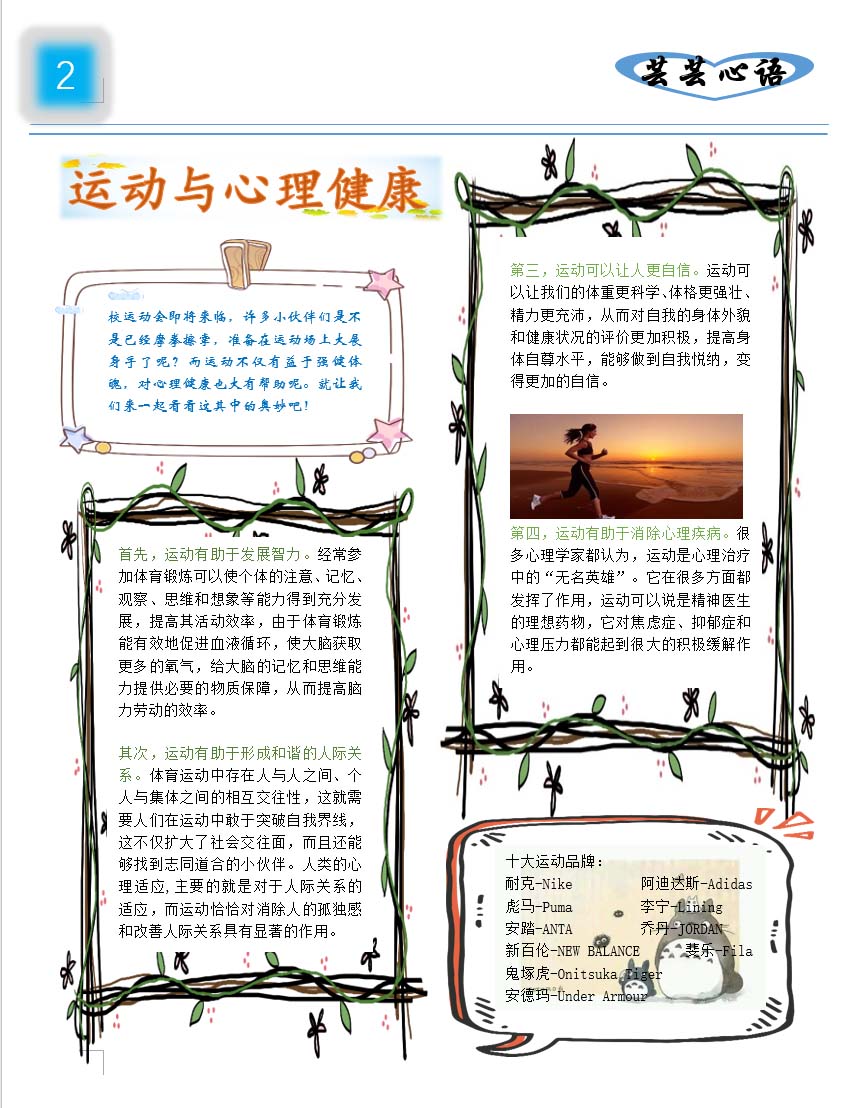 2
芸芸心语
运动与心理健康
校运动会即将来临，许多小伙伴们是不
是已经摩拳擦掌，准备在运动场上大展
身手了呢？而运动不仅有益于强健体
魄，对心理健康也大有帮助呢。就让我
们来一起看看这其中的奥妙吧！
首先，运动有助于发展智力。经常参
加体育锻炼可以使个体的注意、记忆、
观察、思维和想象等能力得到充分发
展，提高其活动效率，由于体育锻炼
能有效地促进血液循环，使大脑获取
更多的氧气，给大脑的记忆和思维能
力提供必要的物质保障，从而提高脑
力劳动的效率。
其次，运动有助于形成和谐的人际关
系。体育运动中存在人与人之间、个
人与集体之间的相互交往性，这就需
要人们在运动中敢于突破自我界线，
这不仅扩大了社会交往面，而且还能
够找到志同道合的小伙伴。人类的心
理适应,主要的就是对于人际关系的
适应，而运动恰恰对消除人的孤独感
和改善人际关系具有显著的作用。
第三，运动可以让人更自信。运动可
以让我们的体重更科学、体格更强壮、
精力更充沛，从而对自我的身体外貌
和健康状况的评价更加积极，提高身
体自尊水平，能够做到自我悦纳，变
得更加的自信。
第四，运动有助于消除心理疾病。很
多心理学家都认为，运动是心理治疗
中的“无名英雄”。它在很多方面都
发挥了作用，运动可以说是精神医生
的理想药物，它对焦虑症、抑郁症和
心理压力都能起到很大的积极缓解作
用。
十大运动品牌：
耐克-Nike 阿迪达斯-Adidas
彪马-Puma 李宁-Lining
安踏-ANTA 乔丹-JORDAN
新百伦-NEW BALANCE 斐乐-Fila
鬼塚虎-Onitsuka Tiger
安德玛-Under Armour